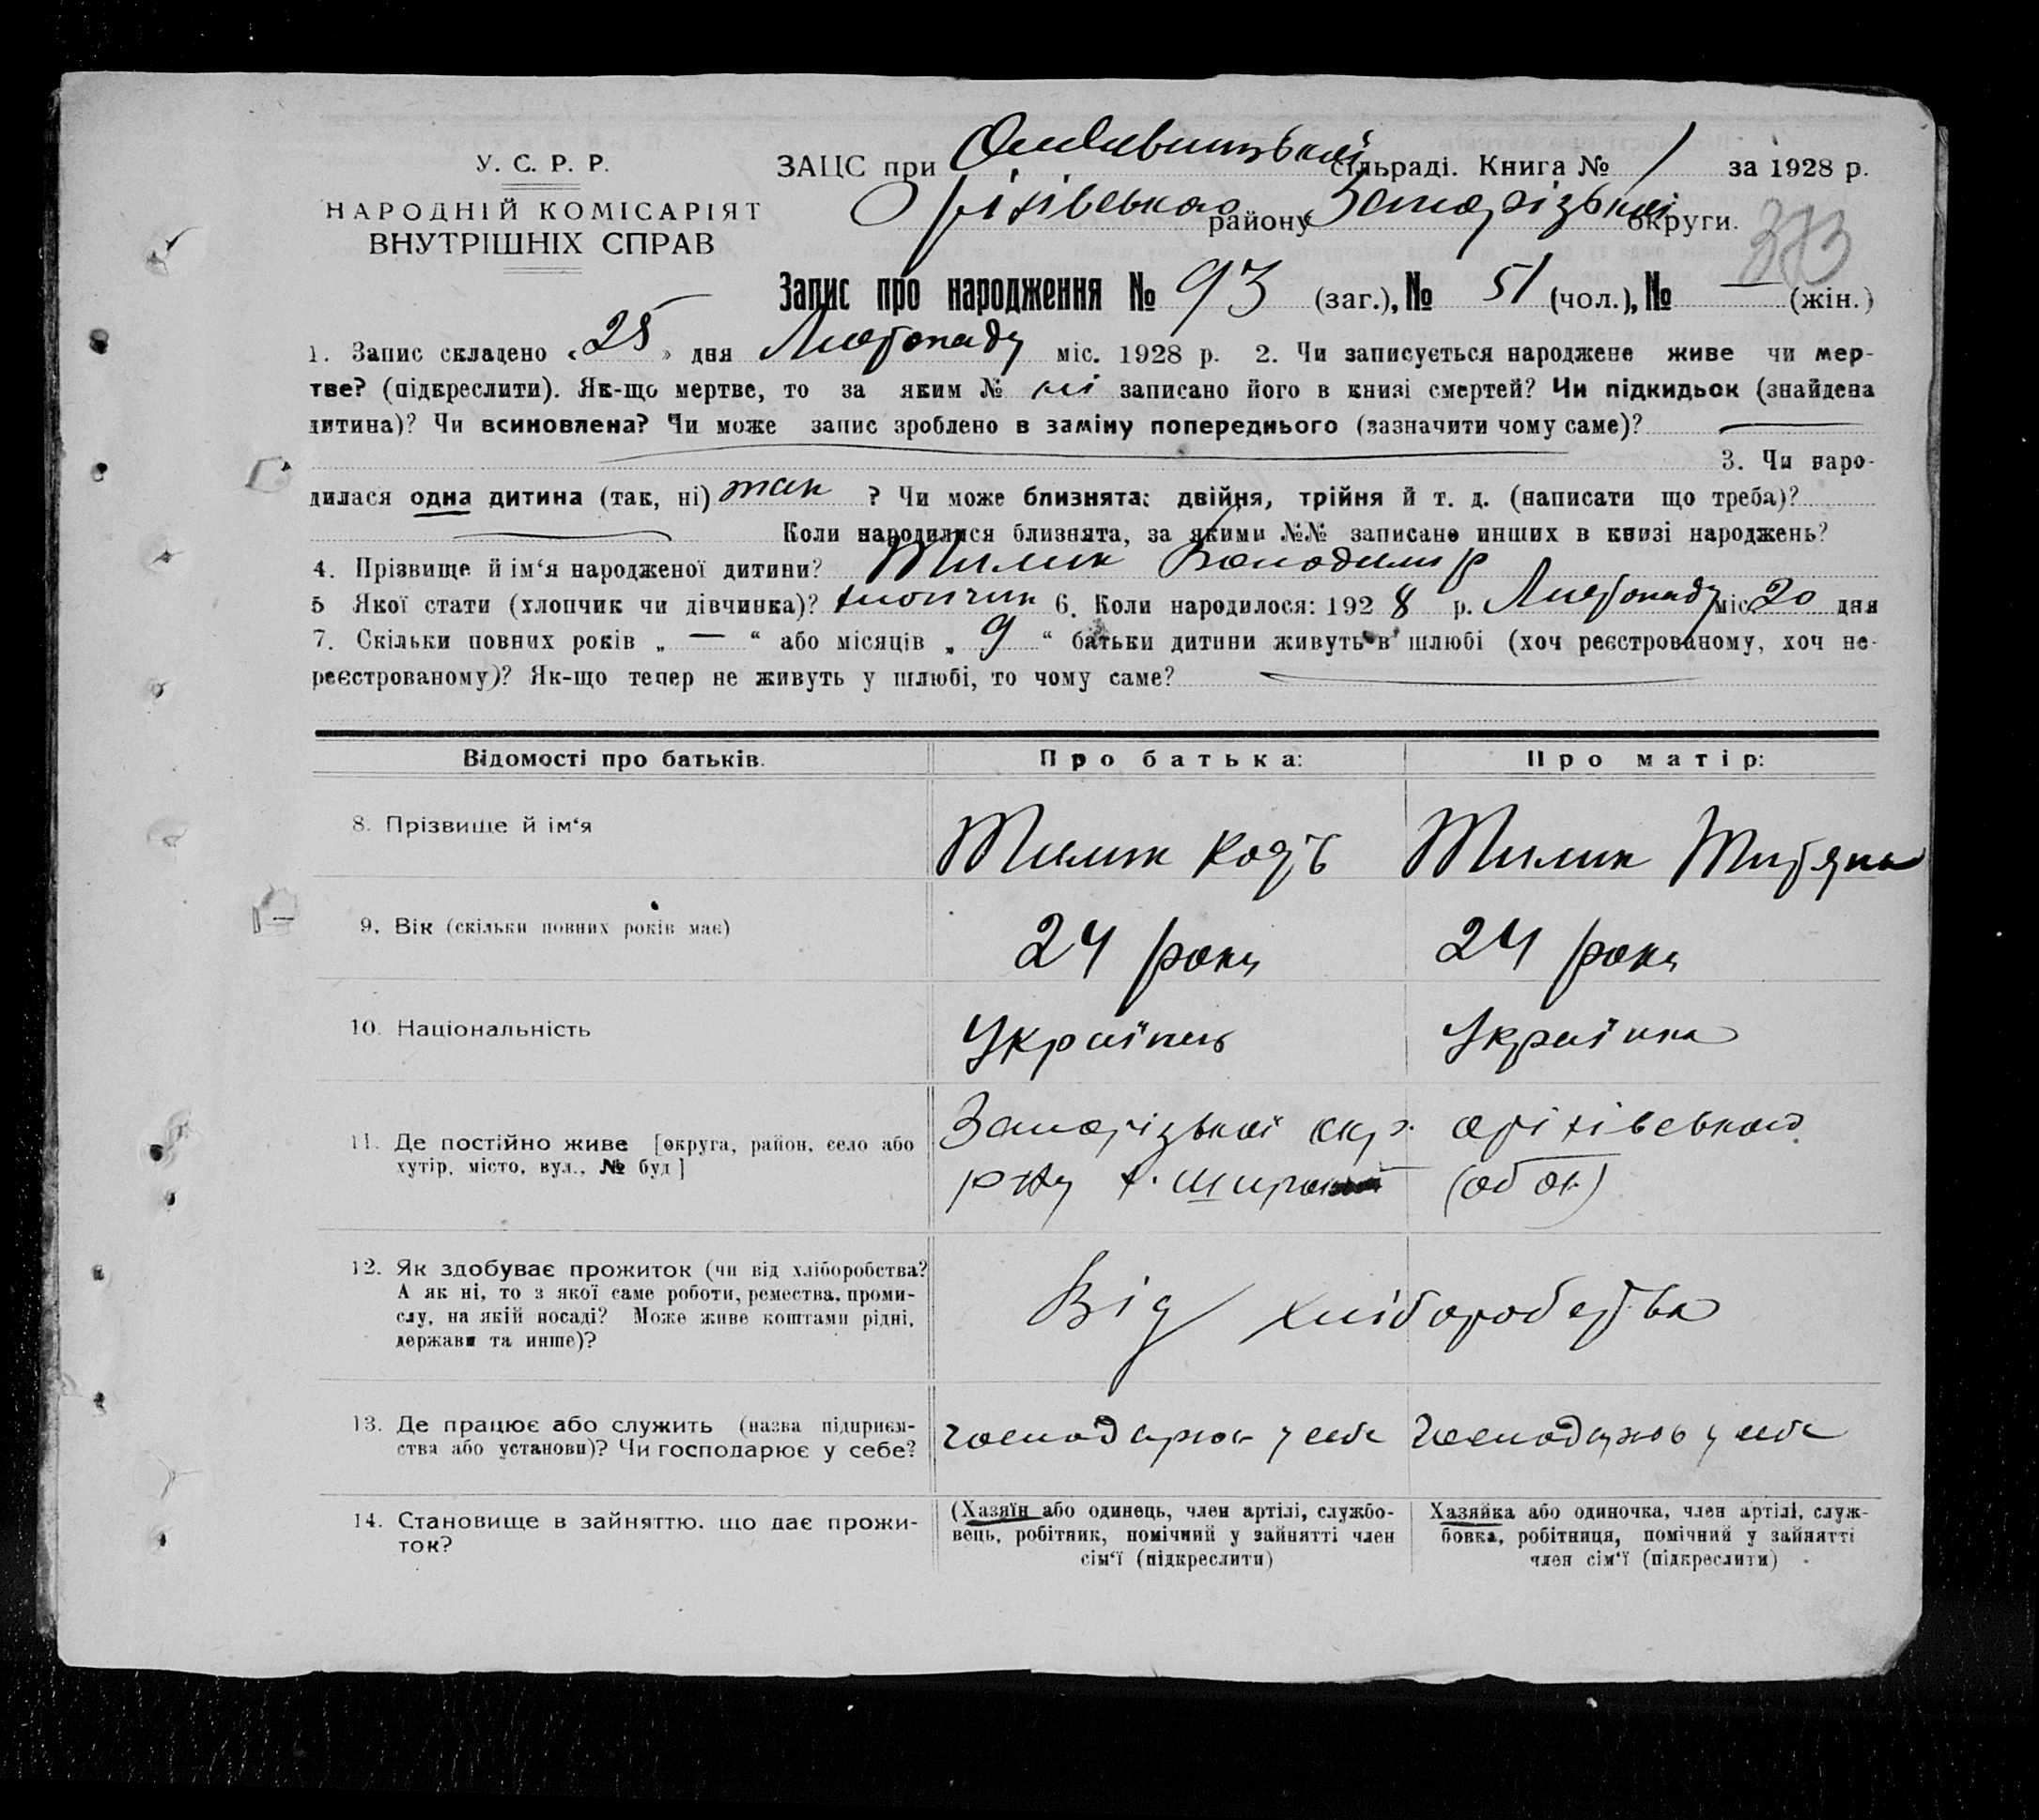 У. С. Р. Р.
НАРОДНІЙ КОМІСАРІЯТ
ВНУТРІШНІХ СПРАВ
ЗАЦС при сільраді. Книга № 1 за 1928 р.
Оріхівського району Запорізької округи.
373
Запис про народження № 93 (заг.), № 51 (чол.), № — (жін.)
1. Запис складено « 25 » дня Листопаду міс. 1928 р. 2. Чи записується народжене живе чи мер-
тве? (підкреслити). Як-що мертве, то за яким № ні записано його в книзі смертей? Чи підкидьок (знайдена
дитина)? Чи всиновлена? Чи може запис зроблено в заміну попереднього (зазначити чому саме)? —
3. Чи наро-
дилася одна дитина (так, ні) так ? Чи може близнята: двійня, трійня й т. д. (написати що треба)?
Коли народилися близнята, за якими №№ записано инших в книзі народжень?
4. Прізвище й ім‘я народженої дитини? Тилик Володимир
5 Якої стати (хлопчик чи дівчинка)? хлопчик 6. Коли народилося: 192 8 р. Листопаду міс. 20 дня
7. Скільки повних років „ — “ або місяців „ 9 “ батьки дитини живуть в шлюбі (хоч реєстрованому, хоч не-
реєстрованому)? Як-що тепер не живуть у шлюбі, то чому саме?
Відомості про батьків. Про батька: Про матір:
8. Прізвище й ім‘я Тилик Тилик
9. Вік (скільки повних років має) 24 роки 24 роки
10. Національність Українець Українка
11. Де постійно живе [округа, район, село або
хутір, місто, вул., № буд]
Запорізької окр. оріхівського
р-ну х. Широкий
12. Як здобуває прожиток (чи від хліборобства?
А як ні, то з якої саме роботи, ремества, проми-
слу, на якій посаді? Може живе коштами рідні,
держави та инше)?
Від хліборобства
13. Де працює або служить (назва підприєм-
ства або установи)? Чи господарює у себе?
господарює у себе господарює у себе
14. Становище в зайняттю, що дає прожи-
ток?
(Хазяїн або одинець, член артілі, службо-
вець, робітник, помічний у зайнятті член
сім‘ї (підкреслити)
Хазяйка або одиночка, член артілі, служ-
бовка, робітниця, помічний у зайнятті
член сім‘ї (підкреслити)